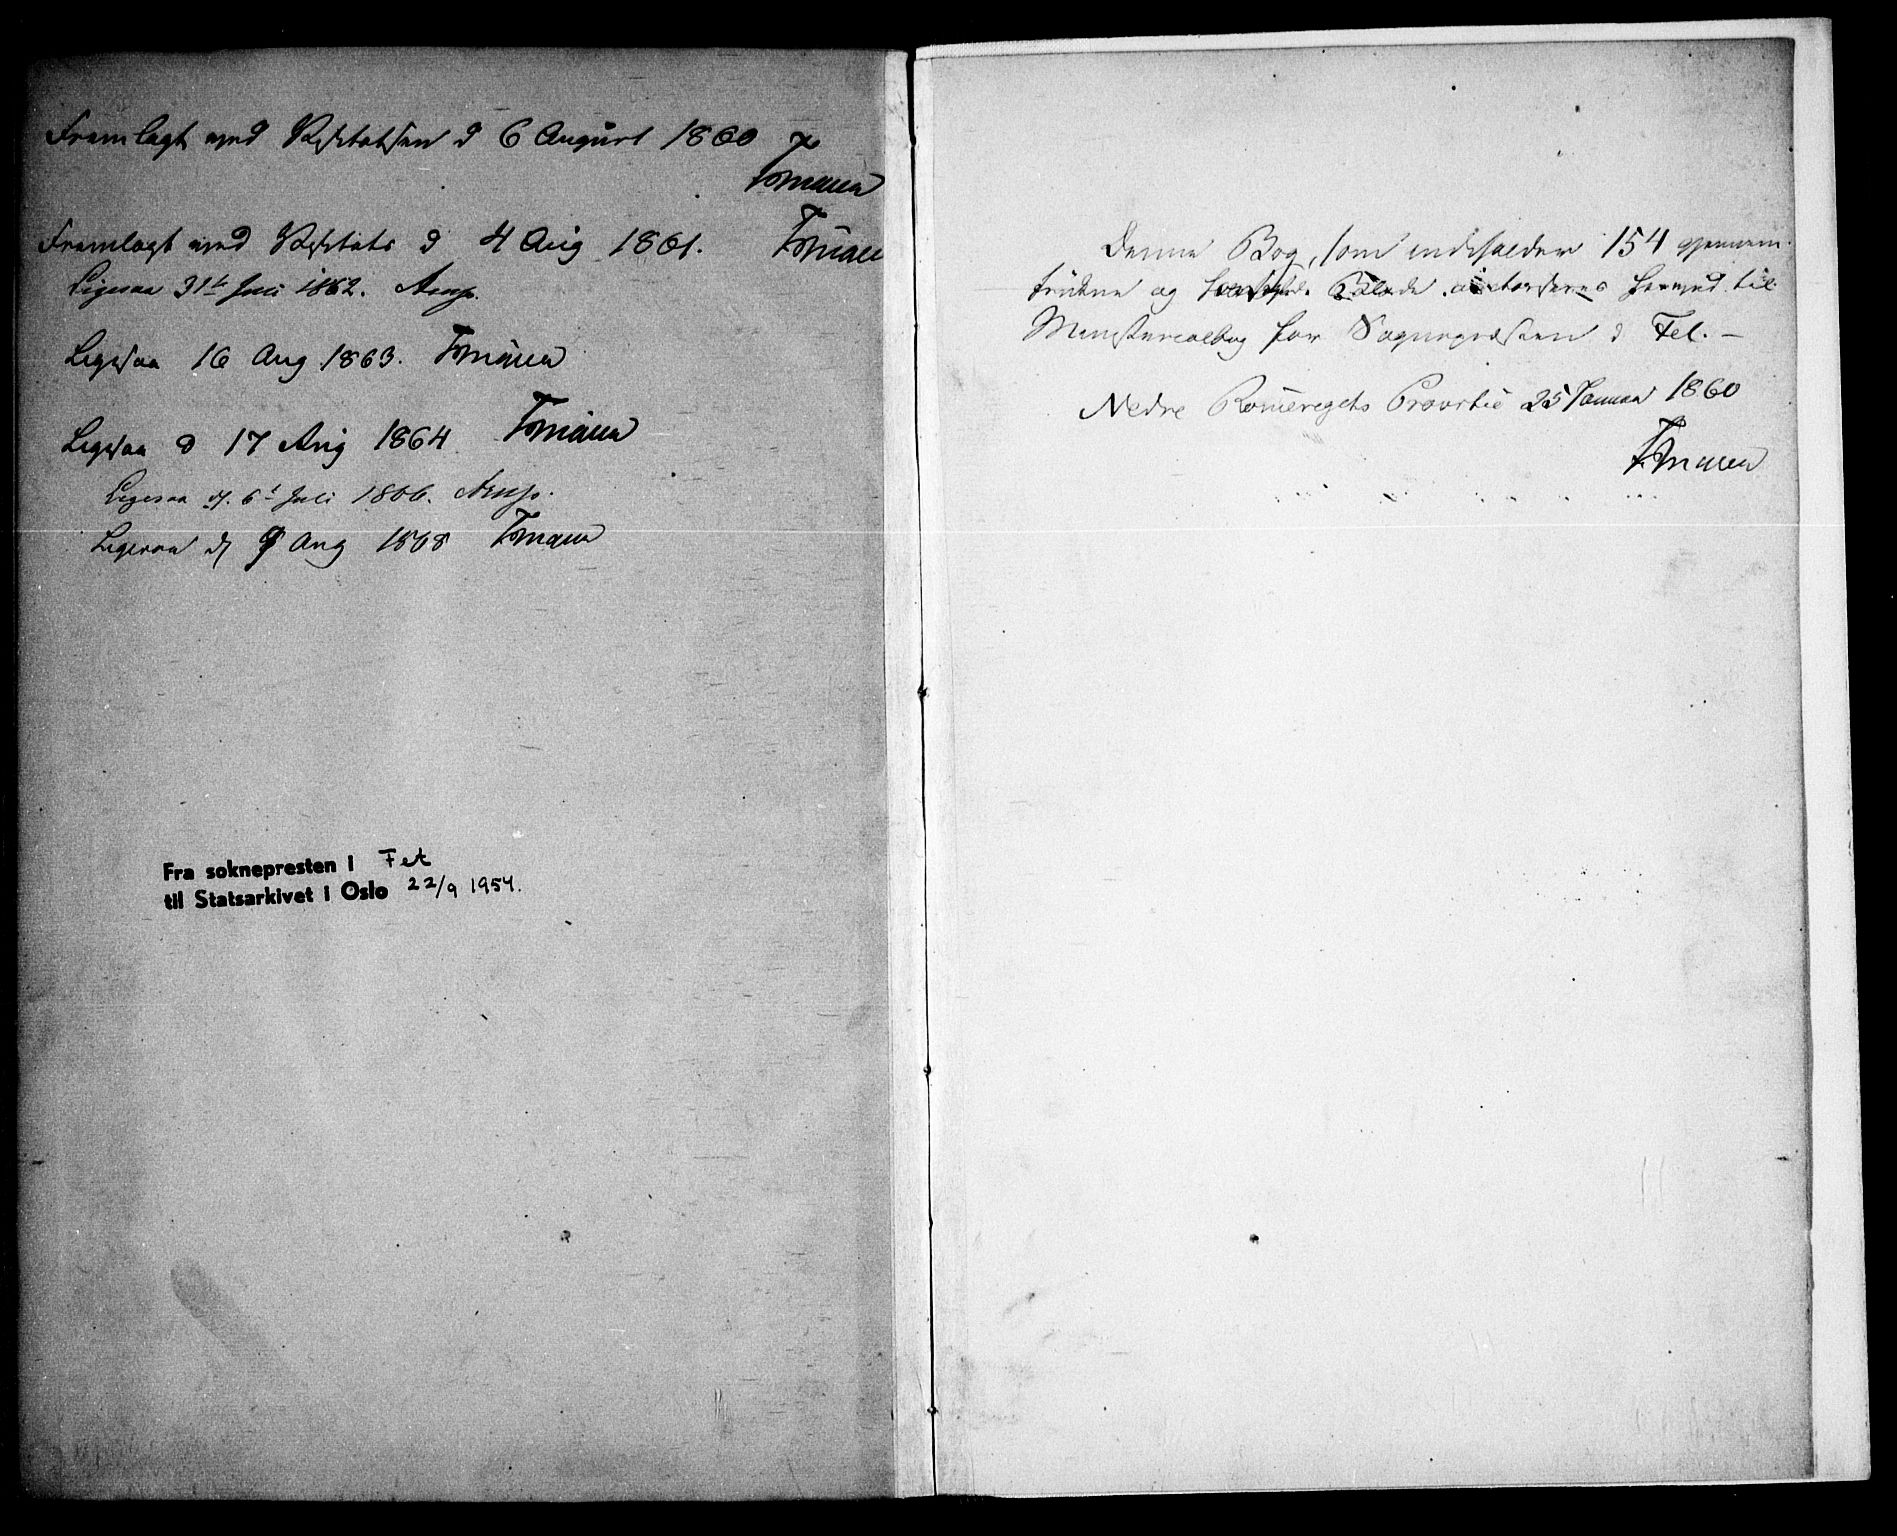 Fremlagt ved Visitatsen d 6 August 1860
Fremlagt ved Visitats d 4 Aug 1861.
Ligesaa 31te Juli 1862. Arup.
Ligesaa 16 Aug 1863.
Ligesaa d 17 Aug 1864
Ligesaa d. 6t Juli 1866. Arup.
Ligesaa d 9 Aug 1868
Fra soknepresten i Fet
til Statsarkivet i Oslo 22/9 1954.
Denne Bog, som indeholder 154 gjennem-
trukne og Blade autoriseres herved til
Ministerialbog for Sognepræsten i Fet. —
Nedre Romeriges Provstie 25 Januar 1860